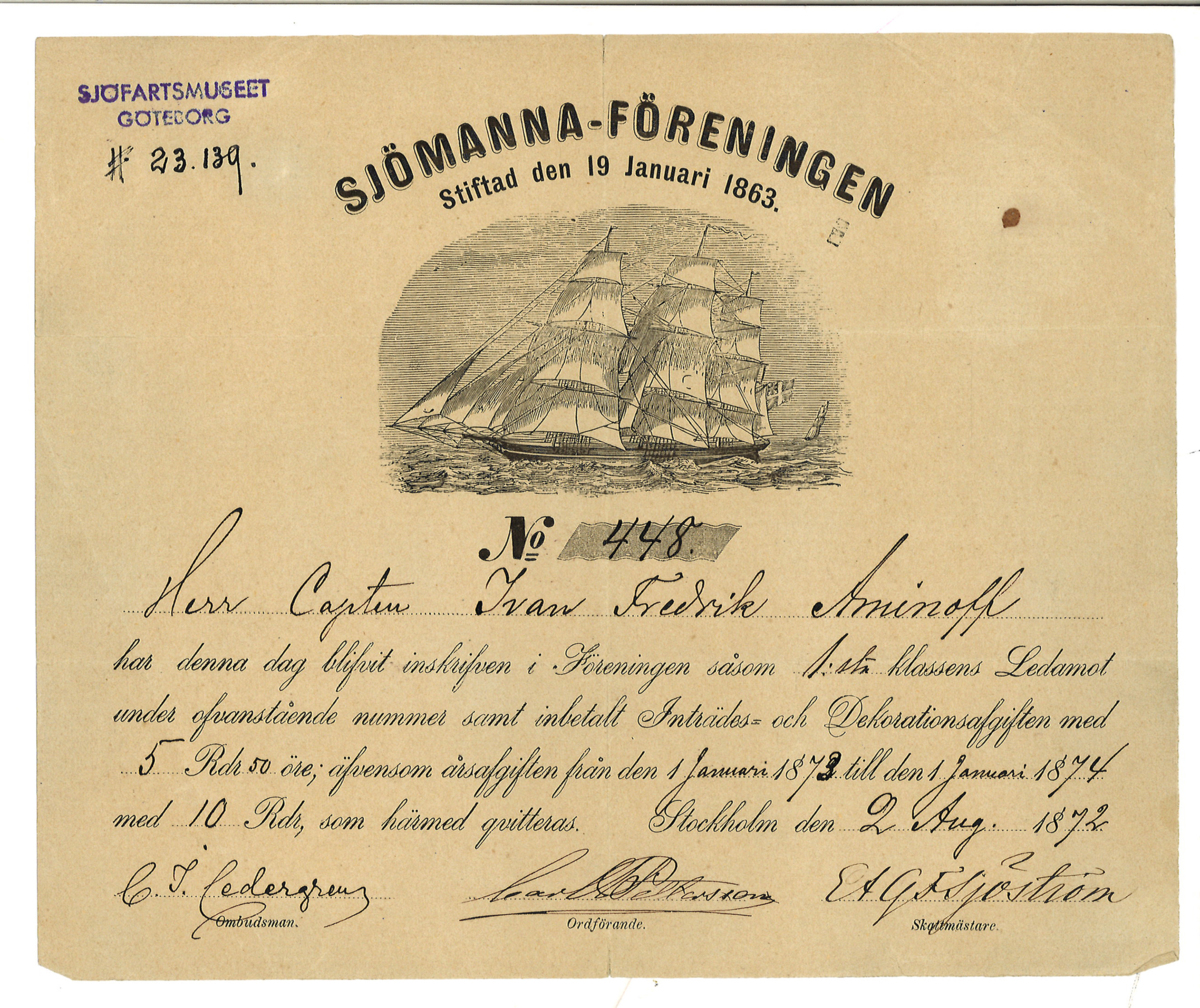 SJÖFARTSMUSEET
GÖTEBORG
# 23.139.
SJÖMANNA-FÖRENINGEN
Stiftad den 19 Januari 1863.
No 448.
Herr Capten Ivan Fredrik Aminoff
har denna dag blifvit inskrifven i Föreningen såsom 1:sta klassens Ledamot
under ofvanstående nummer samt inbetalt Inträdes= och Dekorationsafgiften med
5 Rdr 50 öre; äfvensom årsafgiften från den 1 Januari 1873 till den 1 Januari 1874
med 10 Rdr, som härmed qvitteras. Stockholm den 2 Aug. 1872
C. J. Cedergren
Carl Pettersson
E A G F Sjöström
Ombudsman.
Ordförande.
Skattmästare.